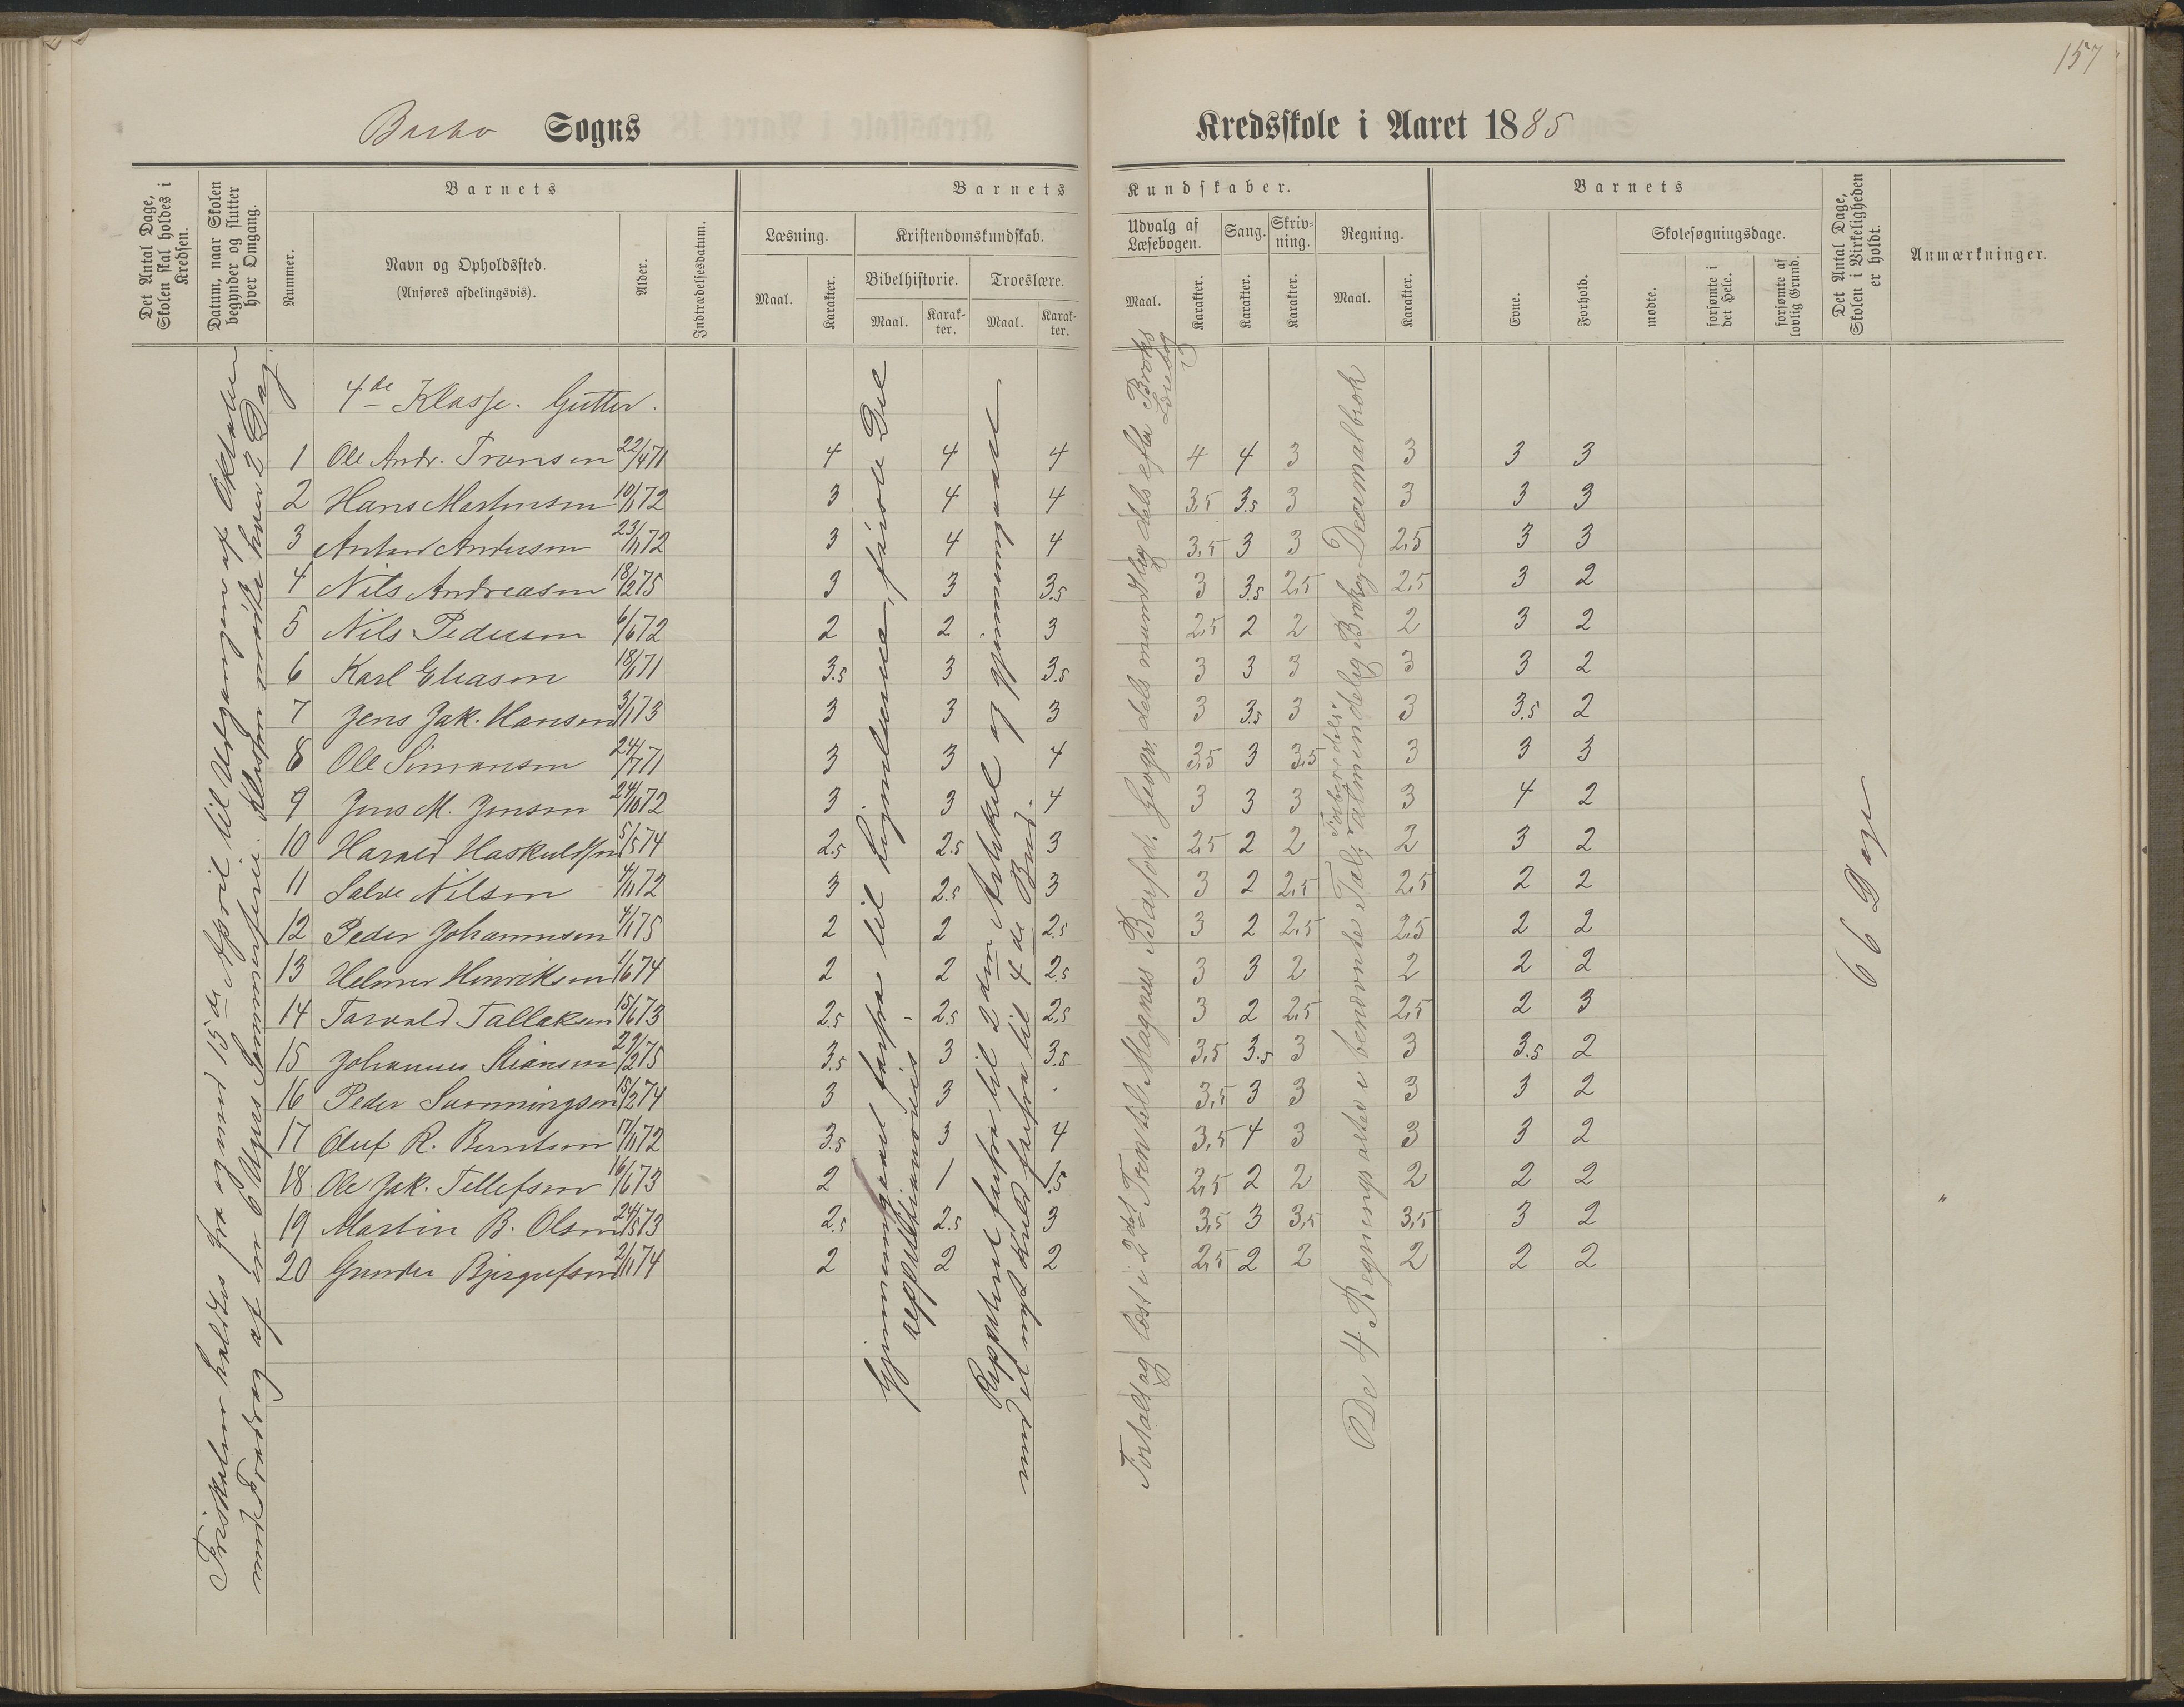 157
Barbo Sogns
Kredsskole i Aaret 1885
Det Antal Dage, Skolen skal holdes i Kredsen.
Datum, naar Skolen begynder og slutter hver Omgang.
Barnets
Nummer.
Navn og Opholdssted.
(Anføres afdelingsvis).
Alder.
Indtrædelsesdatum.
Barnets
Læsning.
Maal.
Karakter.
Kristendomskundskab.
Bibelhistorie.
Maal.
Karak-
ter.
Troeslære.
Maal.
Karak-
ter.
Kundskaber.
Udvalg af
Læsebogen.
Maal.
Karakter.
Sang.
Karakter.
Skriv-
ning.
Karakter.
Regning.
Maal.
Karakter.
Barnets
Evne.
Forhold.
Skolesøgningsdage.
mødte.
forsømte i
det Hele.
forsømte af
lovlig Grund.
Det Antal Dage,
Skolen i Virkeligheden
er holdt.
Anmærkninger.
4de Klasse. Gutter.
1 Ole Andr. Tronsen 22/4 71 4 4 4 4 4 3 3 3 3
2 Hans Martinsen 10/1 72 3 4 4 3,5 3.5 3 3 3 3
3 Anton Andersen 23/1 72 3 4 4 3,5 3 3 2,5 3 3
4 Nils Andreasen 18/2 75 3 3 3.5 3 3.5 2,5 2,5 3 2
5 Nils Pedersen 6/6 72 2 2 3 2,5 2 2 2 3 2
6 Karl Eliasen 18/1 71 3.5 3 3.5 3 3 3 3 3 2
7 Jens Jak. Hansen 3/1 73 3 3 3 3 3.5 3 3 3.5 2
8 Ole Simonsen 24/7 71 3 3 4 3,5 3 3,5 3 3 3
9 Jens M. Jensen 24/10 72 3 3 4 3 3 3 3 4 2
10 Harald Haskuldsen 5/5 74 2.5 2.5 3 2,5 2 2 2 3 2
11 Salve Nilsen 4/11 72 3 2.5 3 3 2 2,5 2,5 2 2
12 Peder Johannesen 4/1 75 2 2 2.5 3 2 2,5 2,5 2 2
13 Helmer Henriksen 1/6 74 2 2 2.5 3 3 2 2 2 2
14 Torvald Tallaksen 15/6 73 2.5 2.5 2.5 3 2 2,5 2,5 2 3
15 Johannes Stiansen 29/2 75 3.5 3 3.5 3,5 3.5 3 3 3.5 2
16 Peder Svenningsen 15/2 74 3 3 3,5 3 3 3 3 2
17 Oluf R. Berntsen 17/11 72 3.5 3 4 3,5 4 3 3 3 2
18 Ole Jak. Tellefsen 16/6 73 2 1 1.5 2,5 2 2 2 2 2
19 Martin B. Olsen 24/5 73 2.5 2.5 3 3,5 3 3,5 3,5 3 2
20 Gunder Bjorgufsen 2/11 74 2 2 2 2,5 2 2 2 2 2
Friskolen holdtes fra og med 15de April til Udgangen af Oktober
med Fradrag af en 6 Ugers Sommerferie. Klassen mødte hver 2 Dag.
Gjennemgaaet forfra til Lignelserne, første Del
reppetitionsvis
Reppetent forfra til 2den Artikel og gjennemgaaet
med et nyt Kuld forfra til 4de Bud.
Fortalt og læst i 2det Trin til Magnus Barfod. Geogr. dels mundtlig dels efter Broks
Lærebog
De 4 Regningsarter i benævnte Tal, almindelig Brøk og Decimalbrøk
Forberedelse
66 Dage